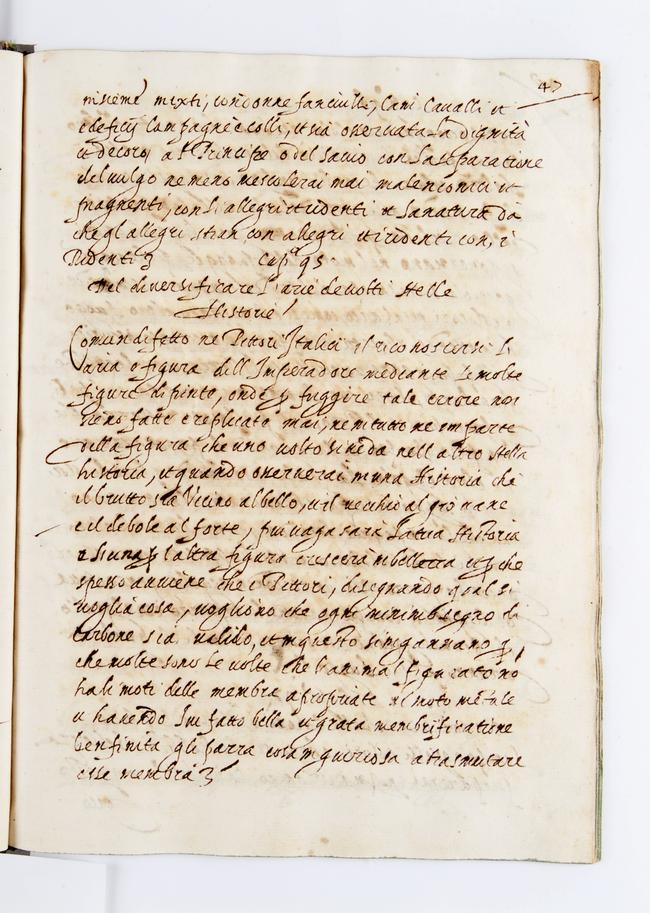 47
insieme mixti, con donne fanciulli, Cani Cavalli et
edeficij Campagne e colli, et sia osservata La dignità
et decoro al Principe o del savio con La separatione
del vulgo ne meno mescolerai mai malenconici et
piagnenti, con li allegri et ridenti et La natura da
che gl allegri stian con allegri et i ridenti con, i
Ridenti Cap.º 95
Del diversificare l'arie de volti nelle
Historie
Comun difetto ne Pittori Italici il riconoscersi l
aria e figura dell Imperadore mediante Le molte
figure dipinte, onde p fuggire tale errore non
sieno fatte e replicate mai, ne in tutto ne in parte
della figura che uno volto si veda nell altro della
historia, et quando osserverai in una Historia che
il brutto sia Vicino al bello, et il vecchio al giovane
e il debole al forte, piu vaga sarà La tua Historia
e l'una p l altra figura crescerà in bellezza et p che
spesso avviene che i Pittori, disegnando qual si
voglia cosa, vogliono che ogni minimo segno di
carbone sia valido, et in questo s ingannano p
che molte sono Le volte che l'animal figurato nō
ha li moti delle membra apropriate al moto mentale
et havendo lui fatto bella et grata membrificatione
ben finita gli parra cosa ingiuriosa a trasmutare
esse membra